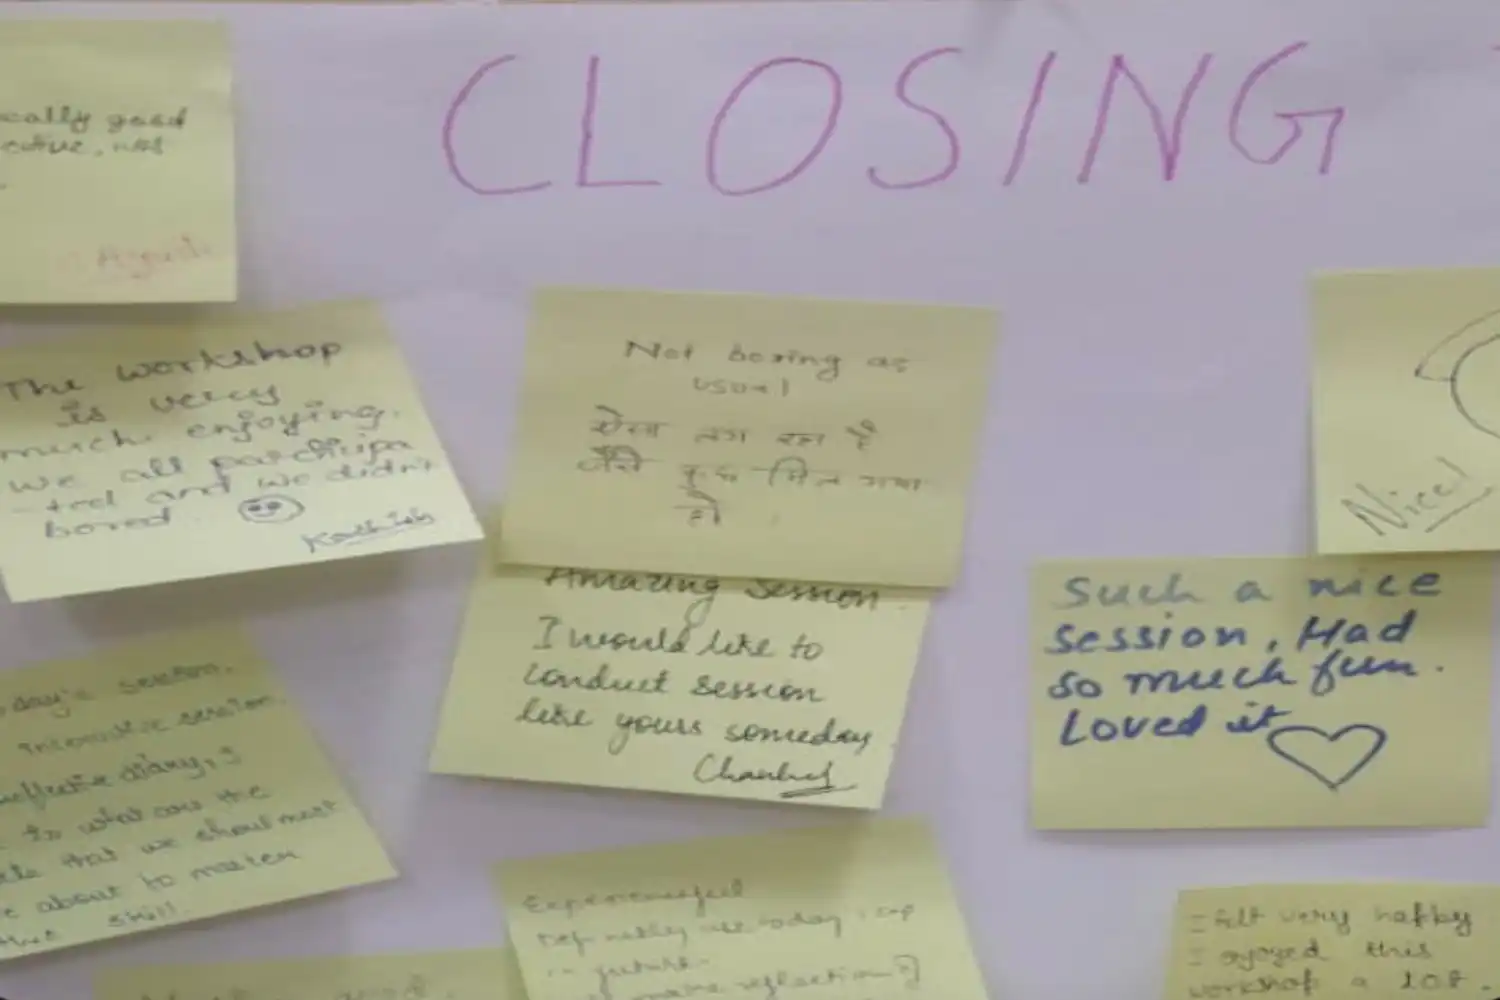 CLOSING
cally good
The workshop
is very
much enjoying.
we all participa
-ted and we didn't
bored
Kashish
Not boring as
usual
ऐसा लग रहा है
जैसे कुछ मिल गया
हो
Amazing Session.
I would like to
conduct session
like yours someday.
Nice!
Such a nice
session, Had
so much fun.
Loved it
day's session.
interactive session.
reflective diary, I
to what are the
that we should must
about to master
skill.
Experienceful
today
in future.
reflection
I felt very happy
I ejoyed this
workshop a lot.
good